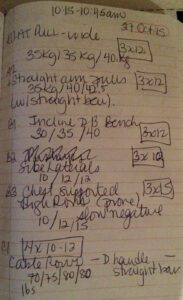 10:15 - 10:45am
37 Oct 15
A1 Lat Pull - wide 3x12
35kg / 35kg / 40kg
A2 Straight arm pulls 3x12
35kg / 40 / 42.5
(w/ straight bar)
B1 Incline DB Bench 3x12
30 / 35 / 40
B2 3x12
Side Laterals
10 / 12 / 12
B3 Chest supported 3x15
High Rows (prone)
10 / 12 / 15 slow negative
C1 4x 10-12
Cable Rows - D handle
70 / 75 / 80 / 80 straight bar
lbs